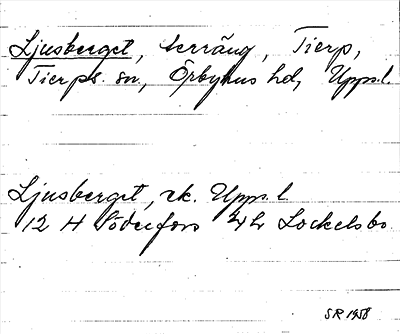 Ljusberget, terräng, Tierp,
Tierps sn, Örbyhus hd, Upps.l.
Ljusberget, ek. Upps.l.
12 H Söderfors 4h Lockelsbo
SR 1958